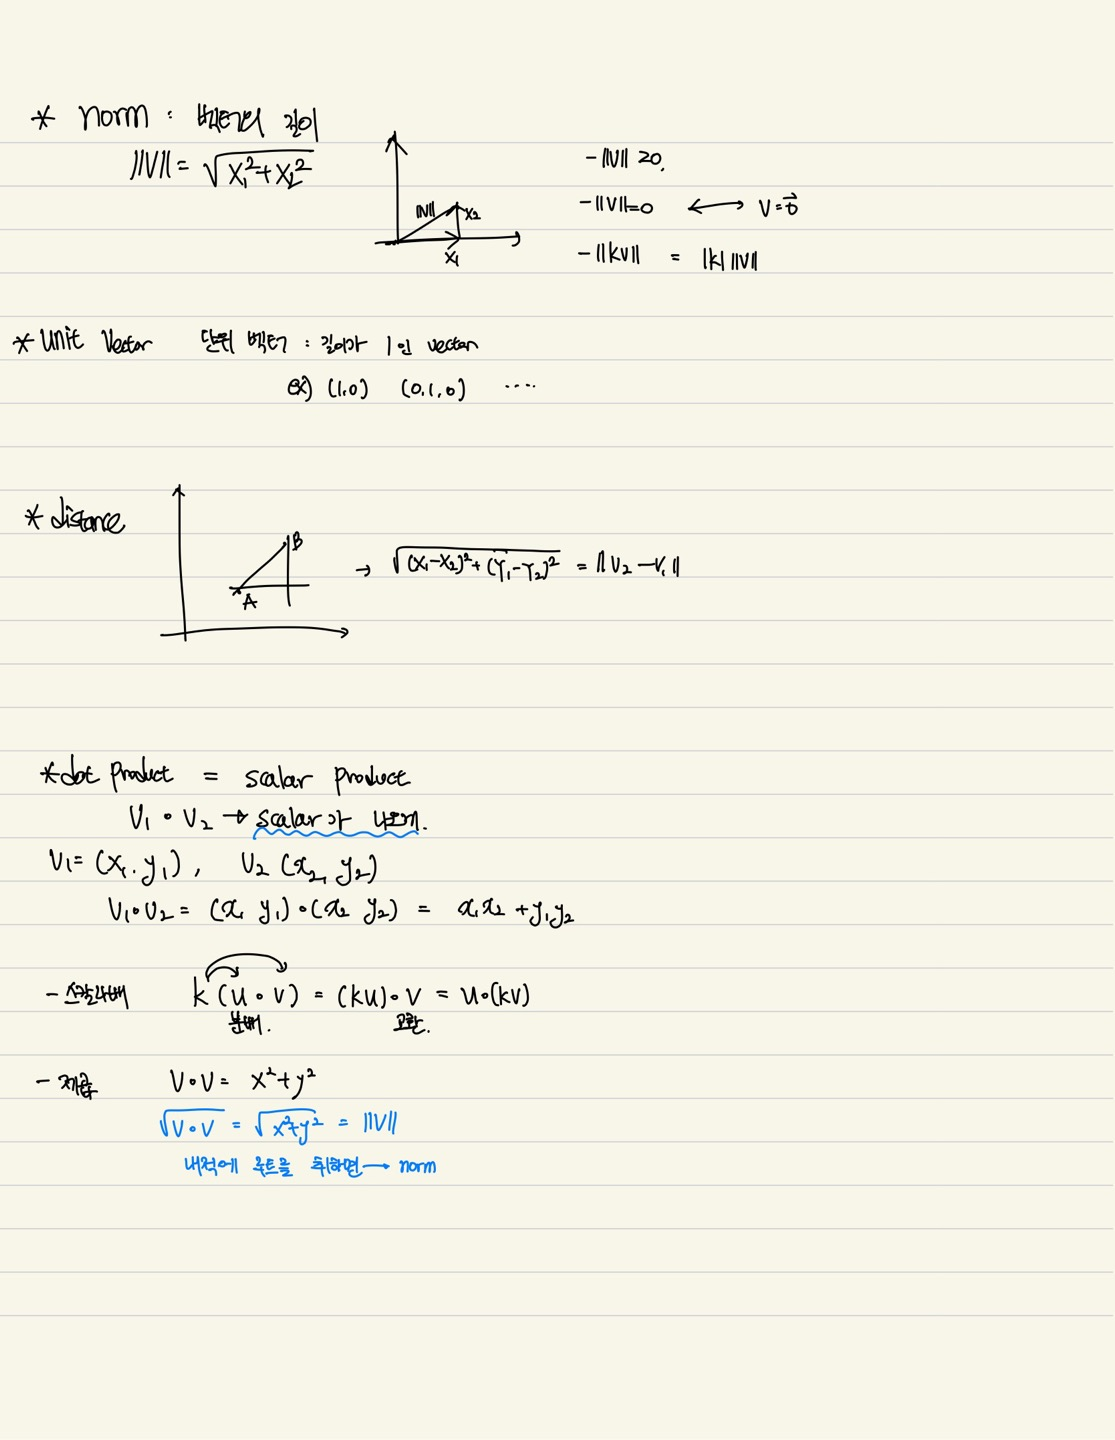 * norm : 벡터의 길이
||V|| = √(x₁²+x₂²)
||V|| x₂
x₁
- ||V|| ≥0.
- ||V||=0 ↔ V=0⃗
- ||kv|| = |k| ||V||
* Unit Vector 단위 벡터 : 길이가 1인 vector
ex) (1.0) (0.1.0) ....
* distance
B
A
→ √((x₁-x₂)²+(Y₁-Y₂)²) = ||V₂-V₁||
* dot product = scalar product
V₁ ∘ V₂ → scalar가 나오게.
V₁= (x₁. y₁), V₂ (x₂, y₂)
V₁∘V₂ = (x₁ y₁)∘(x₂ y₂) = x₁x₂ + y₁y₂
- 스칼라배 k (u ∘ v) = (ku)∘v = u∘(kv)
분배. 교환.
- 제곱 V∘V = x²+y²
√(V∘V) = √(x²+y²) = ||V||
내적에 루트를 취하면 → norm